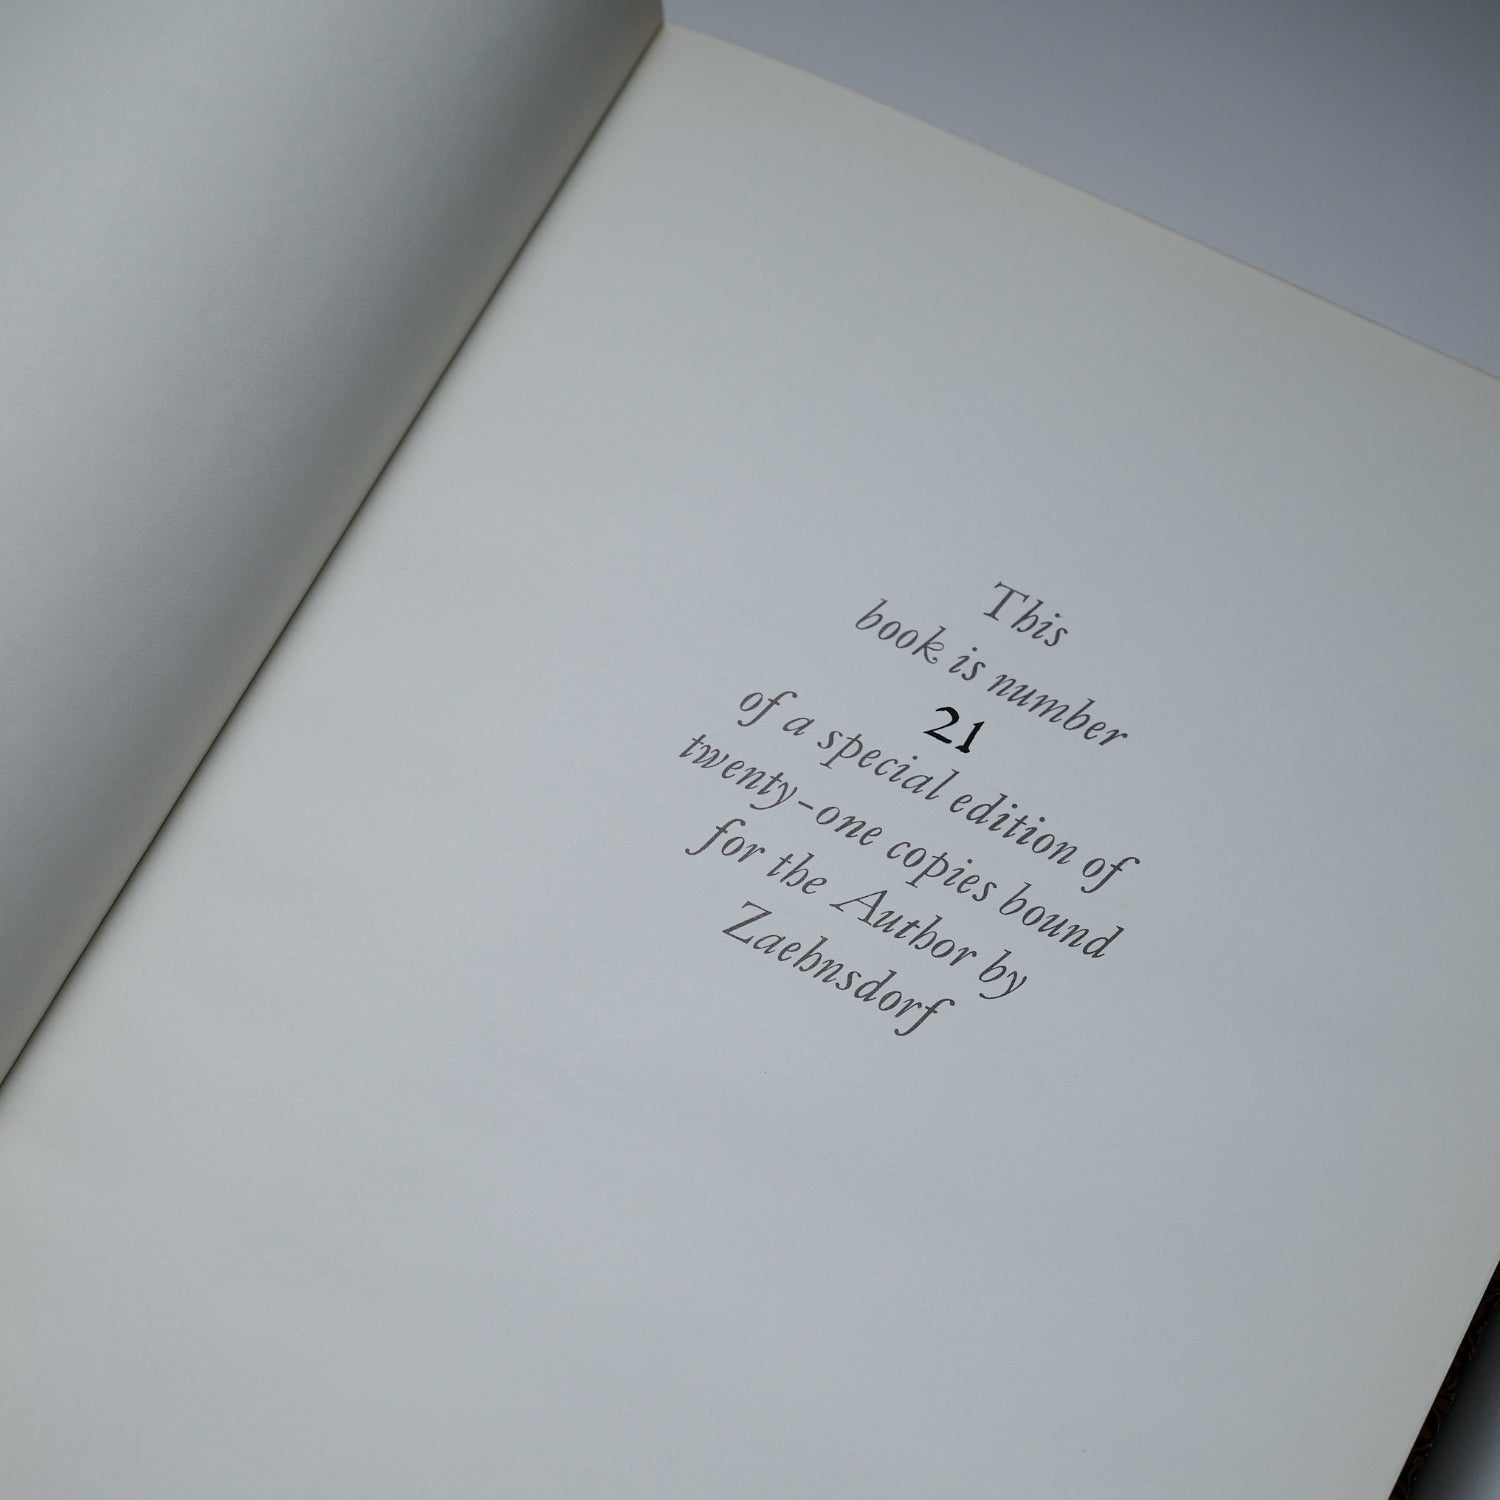 This
book is number
21
of a special edition of
twenty-one copies bound
for the Author by
Zaehnsdorf